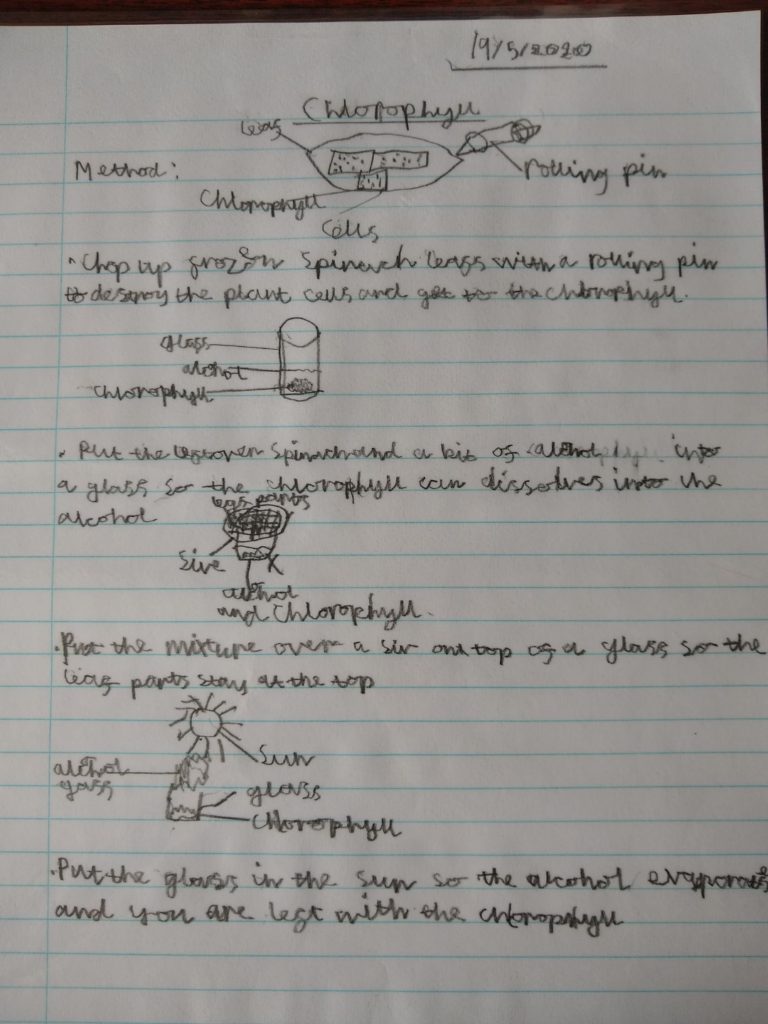 19/5/2020
Chlorophyll
leaf
Method:
rolling pin
Chlorophyll
Cells
• Chop up frozen Spinach leafs with a rolling pin
to destroy the plant cells and get to the chlorophyll.
glass
alcohol
chlorophyll
• Put the leftover Spinach and a bit of alcohol into
a glass so the chlorophyll can dissolves into the
alcohol
leaf parts
Sive
alcohol
and Chlorophyll.
• Put the mixture over a siv on top of a glass so the
leaf parts stay at the top
Sun
alcohol
gass
glass
Chlorophyll
• Put the glass in the sun so the alcohol evaporates
and you are left with the chlorophyll